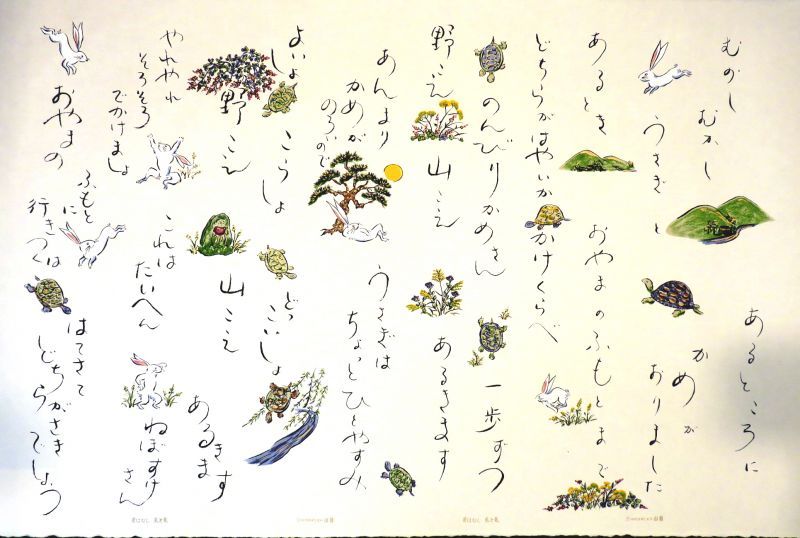 むかし むかし
あるところに
うさぎ と
かめが
おりました
あるとき
おやまのふもとまで
どちらがはやいか かけくらべ
のんびりかめさん 一歩ずつ
野こえ 山こえ あるきます
あんまり
かめが
のろいので
うさぎは
ちょっとひとやすみ
よいしょ こらしょ どっこいしょ
野こえ 山こえ あるきます
やれやれ
そろそろ
でかけましょ
これは
たいへん
ねぼすけ
さん
おやまの
ふもとに
行きつくは
はてさて
どちらがさき
でしょう